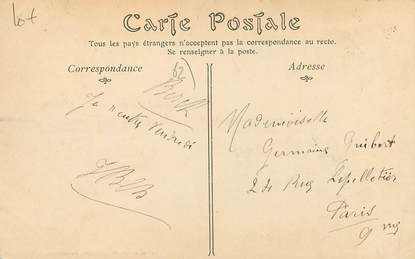 Lot
Carte Postale
Tous les pays étrangers n'acceptent pas la correspondance au recto.
Se renseigner à la poste.
Correspondance
Adresse
62
Berck
Je rentre Vendredi
Mademoiselle
Germaine Guibert
2 de Rue Lepelletier
Paris
9 me